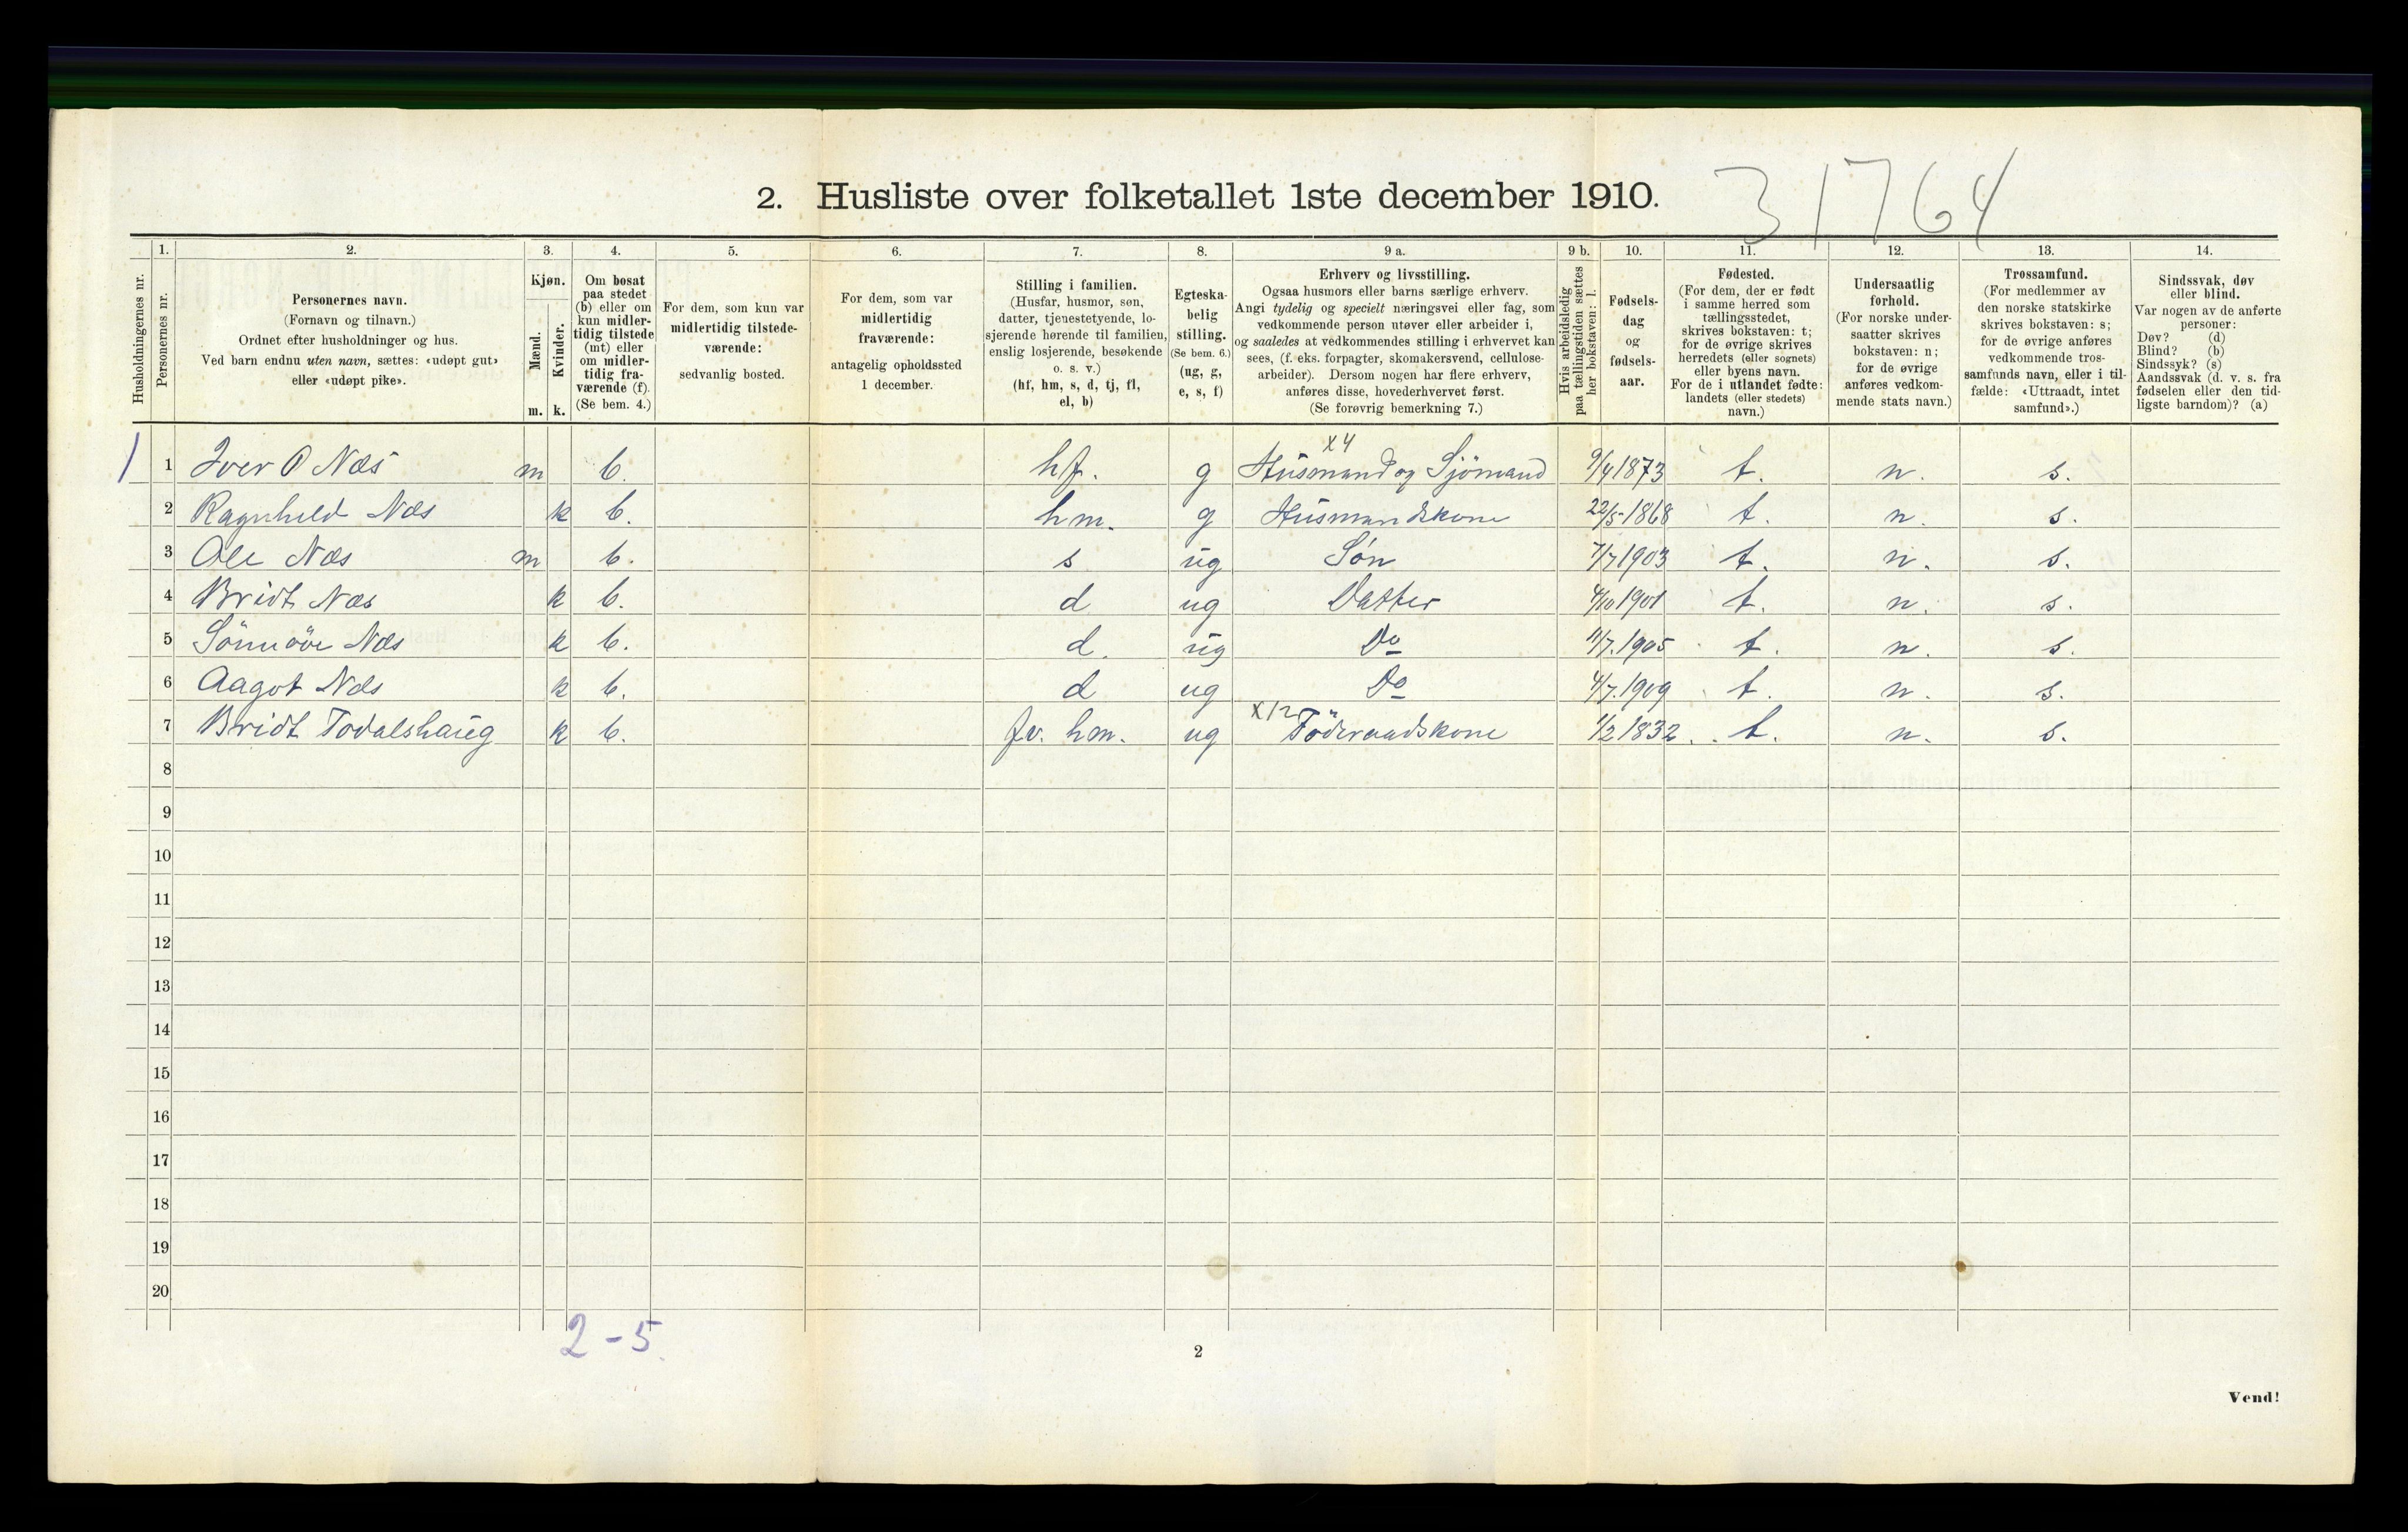 31764
2. Husliste over folketallet 1ste december 1910.
Husholdningernes nr.
1.
Personernes nr.
2.
Personernes navn.
(Fornavn og tilnavn.)
Ordnet efter husholdninger og hus.
Ved barn endnu uten navn, sættes: «udøpt gut»
eller «udøpt pike».
3.
Kjøn.
Mænd.
Kvinder.
m. k.
4.
Om bosat
paa stedet
(b) eller om
kun midler-
tidig tilstede
(mt) eller
om midler-
tidig fra-
værende (f).
(Se bem. 4.)
5.
For dem, som kun var
midlertidig tilstede-
værende:
sedvanlig bosted.
6.
For dem, som var
midlertidig
fraværende:
antagelig opholdssted
1 december.
7.
Stilling i familien.
(Husfar, husmor, søn,
datter, tjenestetyende, lo-
sjerende hørende til familien,
enslig losjerende, besøkende
o. s. v.)
(hf, hm, s, d, tj, fl,
el, b)
8.
Egteska-
belig
stilling.
(Se bem. 6.)
(ug, g,
e, s, f)
9 a.
Erhverv og livsstilling.
Ogsaa husmors eller barns særlige erhverv.
Angi tydelig og specielt næringsvei eller fag, som
vedkommende person utøver eller arbeider i,
og saaledes at vedkommendes stilling i erhvervet kan
sees, (f. eks. forpagter, skomakersvend, cellulose-
arbeider). Dersom nogen har flere erhverv,
anføres disse, hovederhvervet først.
(Se forøvrig bemerkning 7.)
9 b.
Hvis arbeidsledig
paa tællingstiden sættes
her bokstaven: l.
10.
Fødsels-
dag
og
fødsels-
aar.
11.
Fødested.
(For dem, der er født
i samme herred som
tællingsstedet,
skrives bokstaven: t;
for de øvrige skrives
herredets (eller sognets)
eller byens navn.
For de i utlandet fødte:
landets (eller stedets)
navn.)
12.
Undersaatlig
forhold.
(For norske under-
saatter skrives
bokstaven: n;
for de øvrige
anføres vedkom-
mende stats navn.)
13.
Trossamfund.
(For medlemmer av
den norske statskirke
skrives bokstaven: s;
for de øvrige anføres
vedkommende tros-
samfunds navn, eller i til-
fælde: «Uttraadt, intet
samfund».)
14.
Sindssvak, døv
eller blind.
Var nogen av de anførte
personer:
Døv? (d)
Blind? (b)
Sindssyk? (s)
Aandssvak (d. v. s. fra
fødselen eller den tid-
ligste barndom)? (a)
x4
1 1 Iver O Næs m b. hf. g Husmand og Sjömand 9/4 1873 t. n. s.
2 Ragnhild Næs k b. hm. g Husmandskone 22/5-1868 t. n. s.
3 Ole Næs m b. s ug Søn 7/7 1903 t. n. s.
4 Bridt Næs k b. d ug Datter 4/10 1901 t. n. s.
5 Sönnöve Næs k b. d. ug Do 11/7.1905 t. n. s.
6 Aagot Næs k b. d ug Do 4/7.1909 t. n. s.
x12
7 Bridt Todalshaug k b. fv. hm. ug Föderaadskone 1/2 1832 t. n. s.
8
9
10
11
12
13
14
15
16
17
18
19
20
2-5
2
Vend!